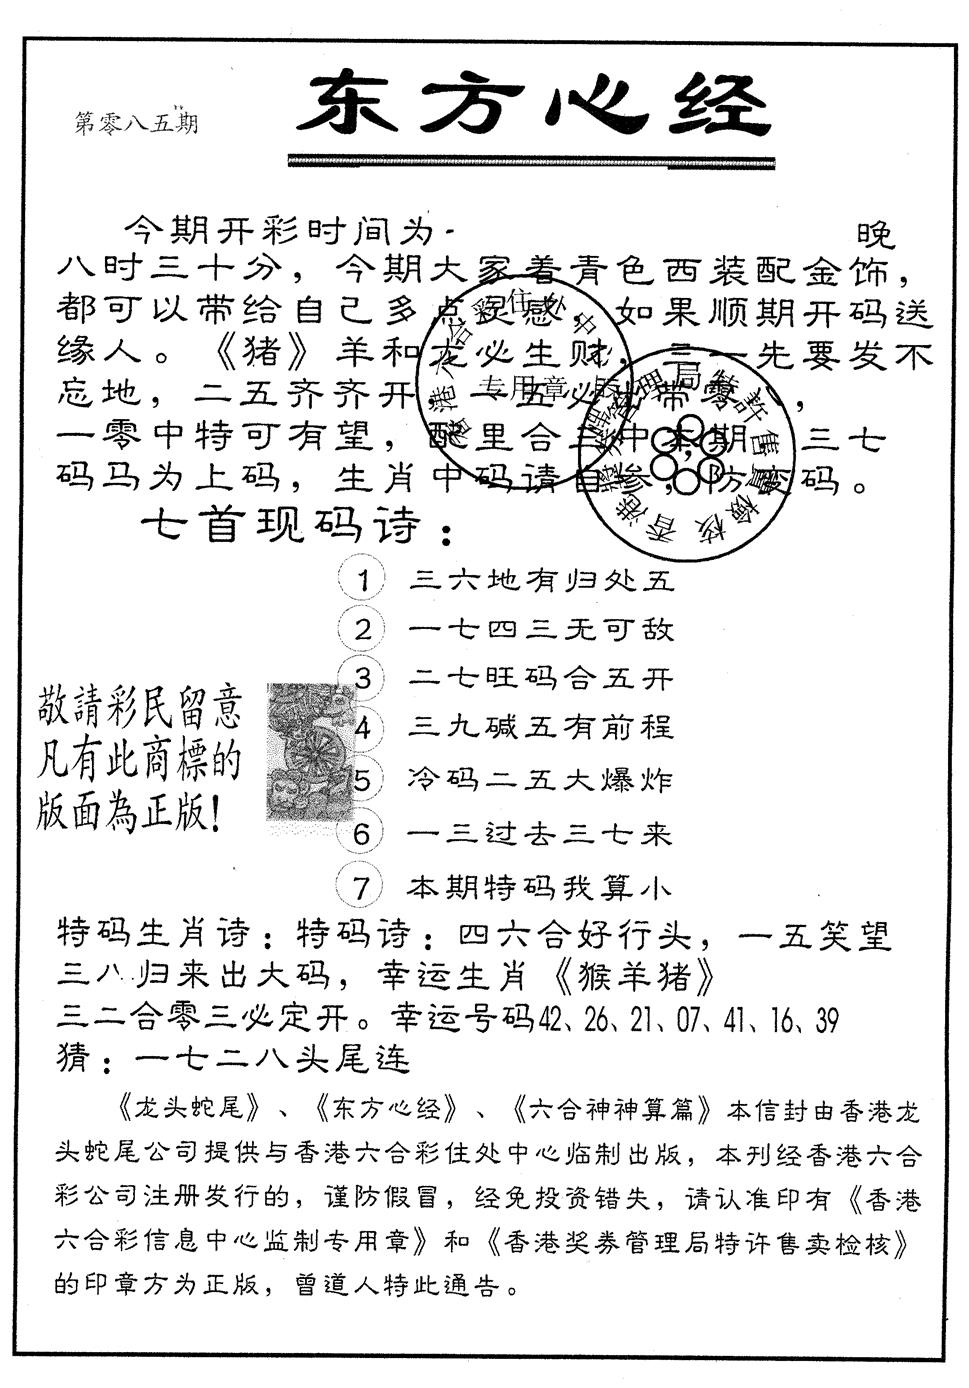 第零八五期
东方心经
今期开彩时间为- 晚
八时三十分，今期大家着青色西装配金饰，
都可以带给自己多点灵感，如果顺期开码送
缘人。《猪》羊和龙必生财，三一先要发不
忘地，二五齐齐开，一五必 带零 ，
一零中特可有望，配里合三中本期，三七
码马为上码，生肖中码请自参，防 码。
香港六合彩住处中
专用章
香港奖券管理局特許售賣檢核
七首现码诗：
1 三六地有归处五
2 一七四三无可敌
3 二七旺码合五开
4 三九碱五有前程
5 冷码二五大爆炸
6 一三过去三七来
7 本期特码我算小
敬請彩民留意
凡有此商標的
版面為正版！
特码生肖诗：特码诗：四六合好行头，一五笑望
三八归来出大码，幸运生肖《猴羊猪》
三二合零三必定开。幸运号码42、26、21、07、41、16、39
猜：一七二八头尾连
《龙头蛇尾》、《东方心经》、《六合神神算篇》本信封由香港龙
头蛇尾公司提供与香港六合彩住处中心临制出版，本刊经香港六合
彩公司注册发行的，谨防假冒，经免投资错失，请认准印有《香港
六合彩信息中心监制专用章》和《香港奖券管理局特许售卖检核》
的印章方为正版，曾道人特此通告。